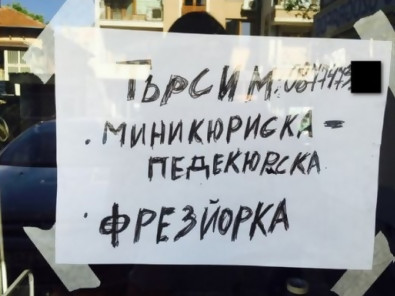 ТЪРСИМ: 0877473
• МИНИКЮРИСКА -
ПЕДЕКЮРСКА
• ФРЕЗЙОРКА